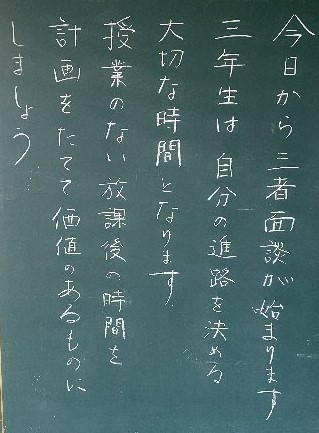 今日から三者面談が始まります
三年生は自分の進路を決める
大切な時間となります
授業のない放課後の時間を
計画をたてて価値のあるものに
しましょう